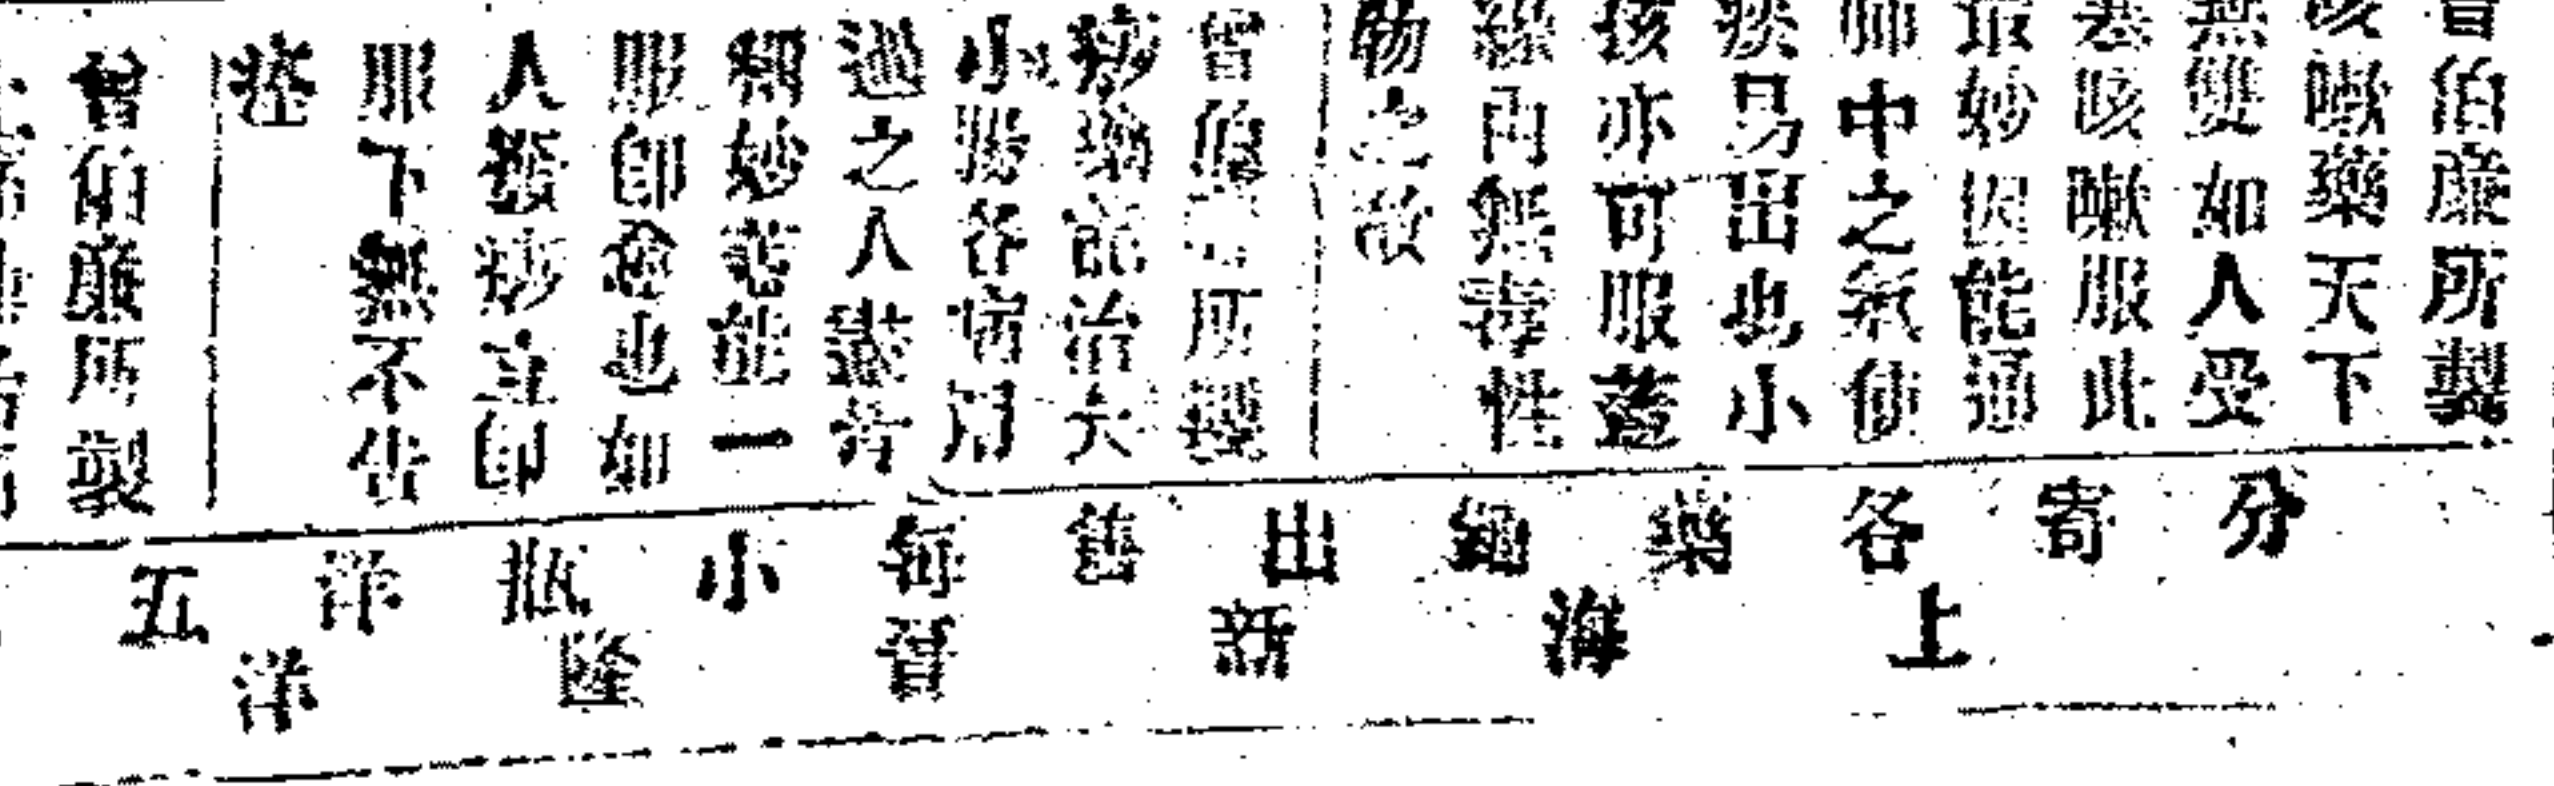 曾伯廉所製
咳嗽藥天下
無雙如人受
寒咳嗽服此
最妙因能通
肺中之氣使
痰易出也小
孩亦可服蓋
緣內無毒性
物之故
曾伯廉所製
痧藥能治大
小腸各病用
過之人
妙能一
服卽愈也如
人發痧立卽
服下無不告
痊
曾伯廉所製
分寄各藥鋪出售每小瓶洋五
上海新晉隆洋